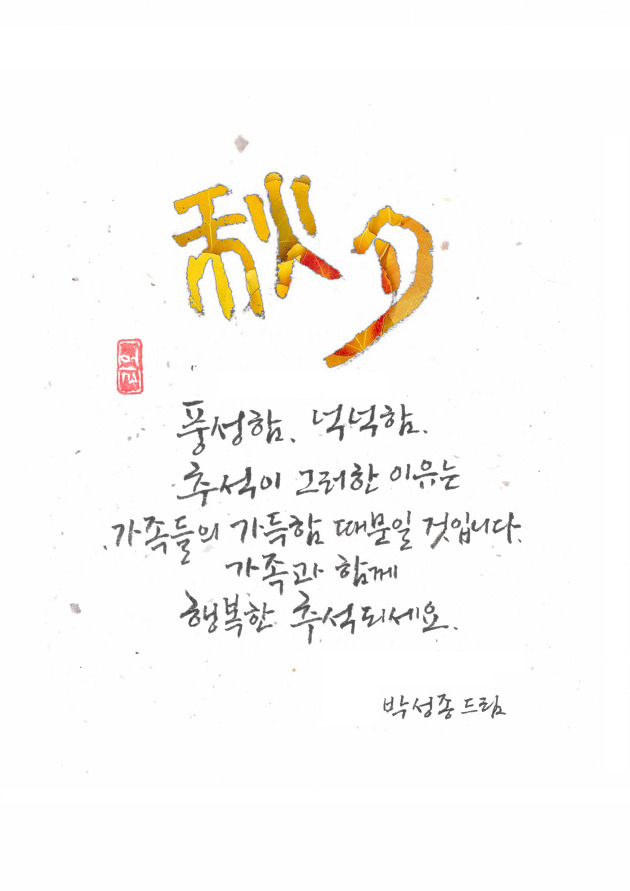 秋夕
풍성함, 넉넉함.
추석이 그러한 이유는
가족들의 가득함 때문일 것입니다.
가족과 함께
행복한 추석되세요.
박성종 드림